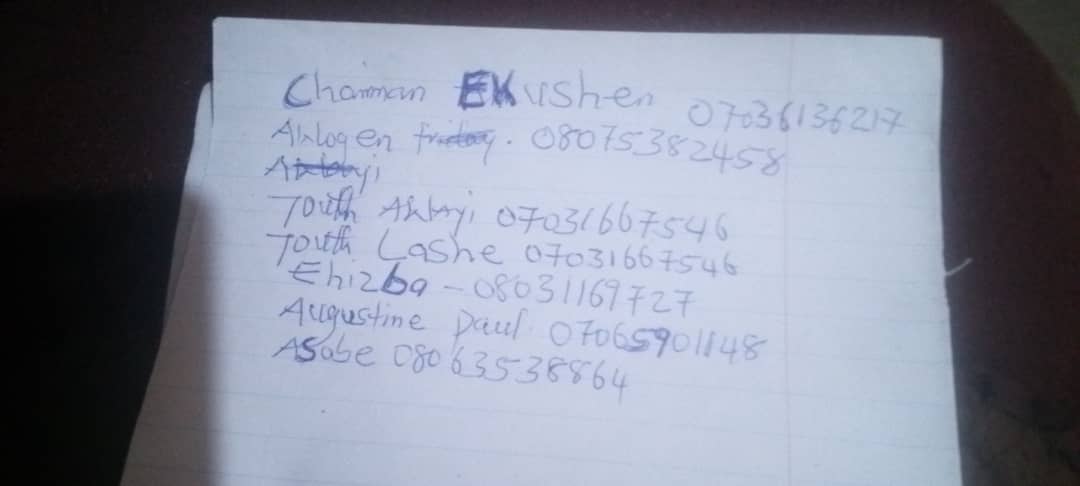 Chairman EKushen 07036136217
Alılogen friday. 08075382458
Youth 07031667546
Youth Lashe 07031667546
Ehizba - 08031169727
Augustine Paul 07065901148
ASabe 08063538864